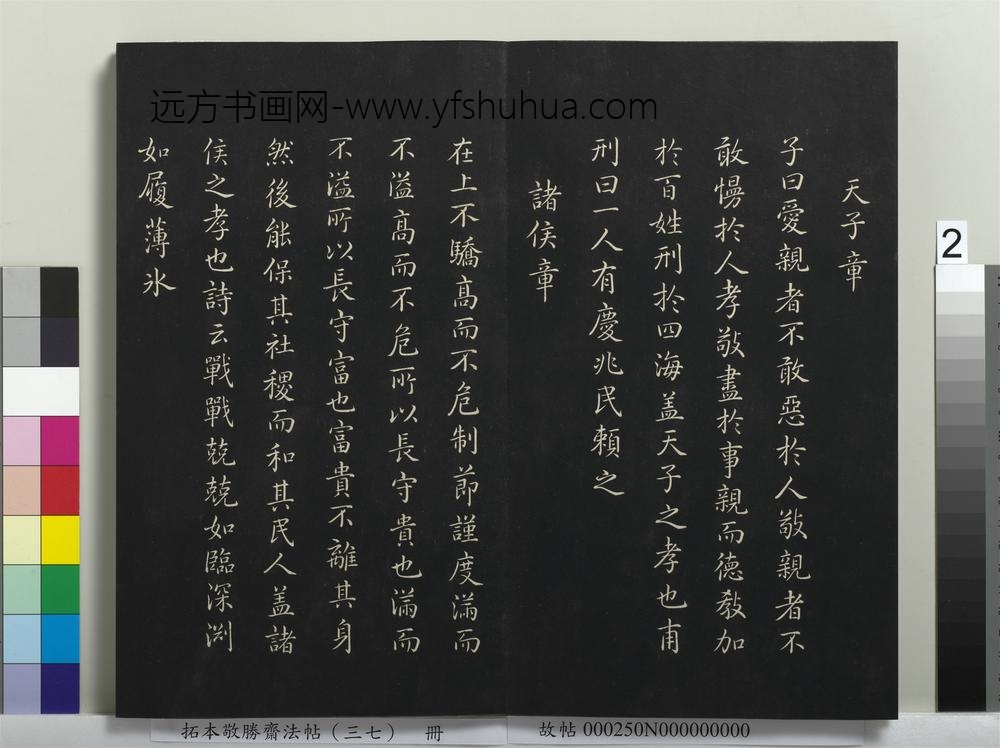 远方书画网-www.yfshuhua.com
天子章
子曰愛親者不敢惡於人敬親者不
敢慢於人孝敬盡於事親而德教加
於百姓刑於四海盖天子之孝也甫
刑曰一人有慶兆民賴之
諸侯章
在上不驕高而不危制節謹度滿而
不溢高而不危所以長守貴也滿而
不溢所以長守富也富貴不離其身
然後能保其社稷而和其民人盖諸
侯之孝也詩云戰戰兢兢如臨深渊
如履薄氷
2
拓本敬勝齋法帖（三七） 冊
故帖 000250N000000000